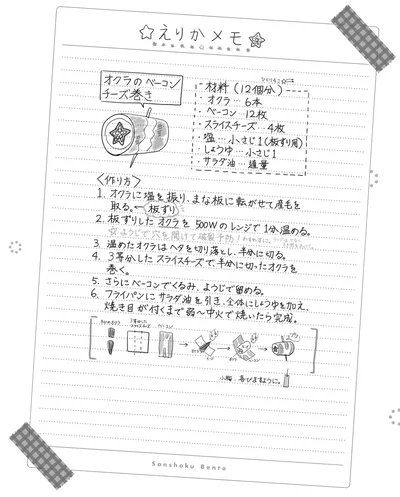 ☆えりかメモ
オクラのベーコン
チーズ巻き
材料(12個分)
オクラ…6本
ベーコン…12枚
スライスチーズ…4枚
塩…小さじ1(板ずり用)
しょうゆ…小さじ1
サラダ油…適量
<作り方>
1. オクラに塩を振り、まな板に転がせて産毛を
取る。←板ずり
2. 板ずりしたオクラを500Wのレンジで1分温める。
☆ようじで穴を開けて破裂予防!
3. 温めたオクラはヘタを切り落とし、半分に切る。
4. 3等分したスライスチーズで、半分に切ったオクラを
巻く。
5. さらにベーコンでくるみ、ようじで留める。
6. フライパンにサラダ油を引き、全体にしょうゆを加え、
焼き目が付くまで弱〜中火で焼いたら完成。
Sanshoku Bento